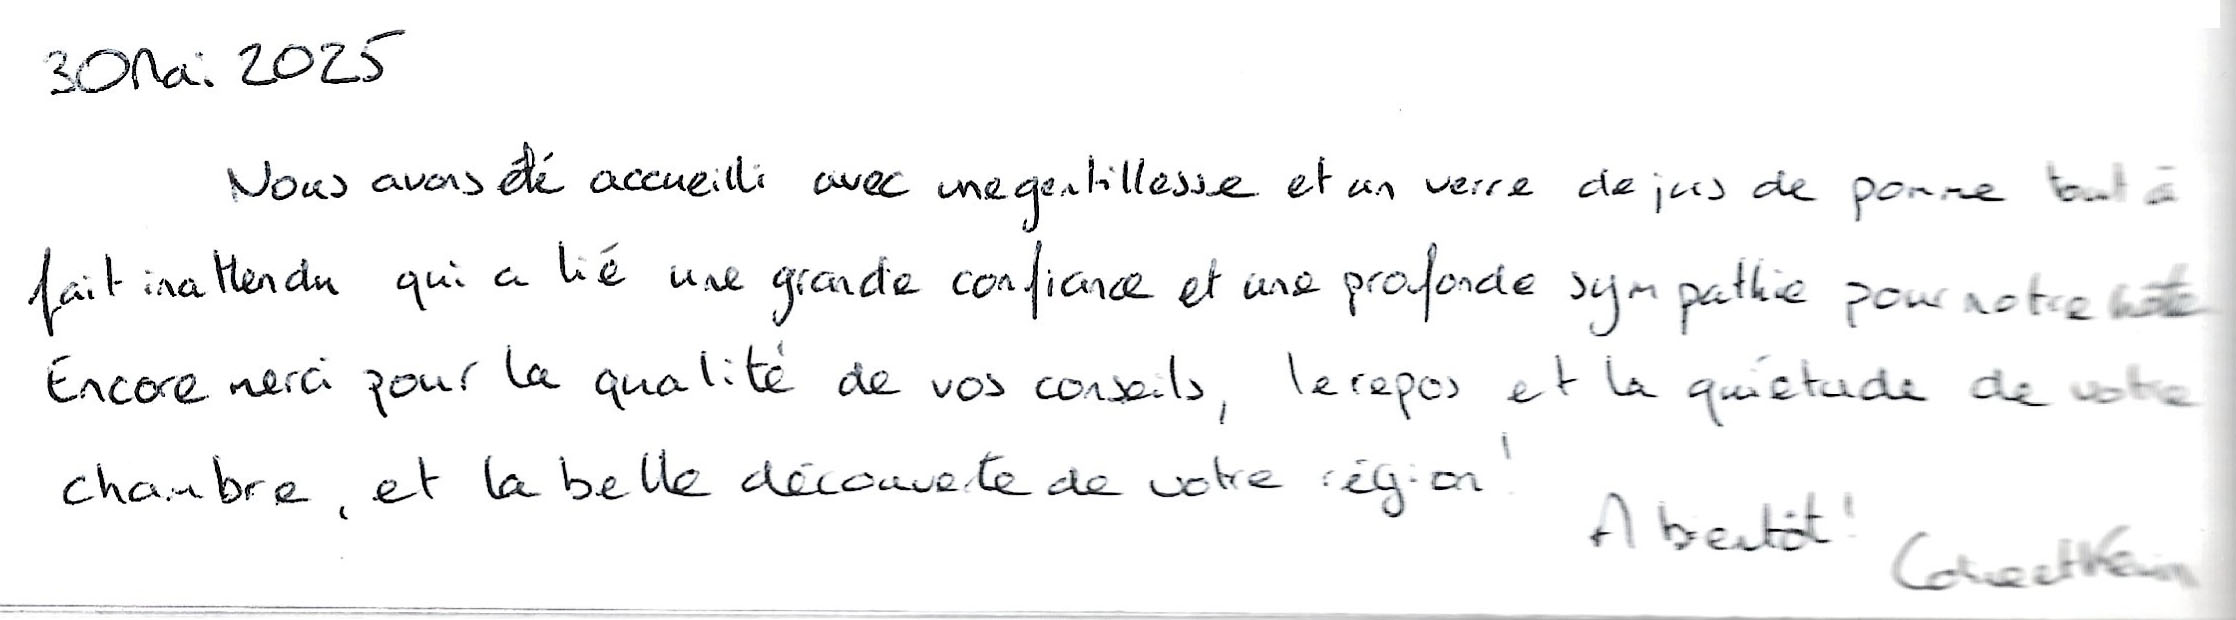 30 Mai 2025
Nous avons été accueilli avec une gentillesse et un verre de jus de pomme tout à
fait inattendu qui a lié une grande confiance et une profonde sympathie pour notre hôte
Encore merci pour la qualité de vos conseils, le repos et la quiétude de votre
chambre, et la belle découverte de votre région !
A bientôt !